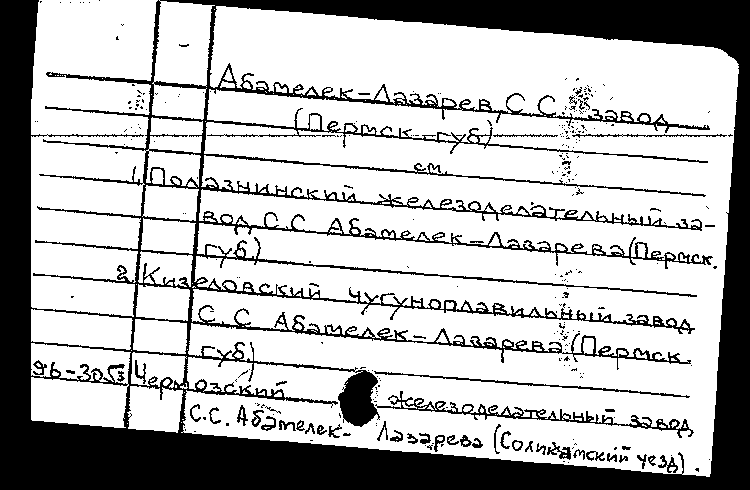 Абамелек-Лазарев, С.С., завод
(Пермск. губ)
см.
1. Полазнинский железоделательный за-
вод С.С Абамелек-Лазарева (Пермск.
губ.)
2. Кизеловский чугуноплавильный завод
С.С Абамелек-Лазарева (Пермск.
губ.)
Чермозский железоделательный завод
С.С. Абамелек-Лазарева (Соликамский уезд).